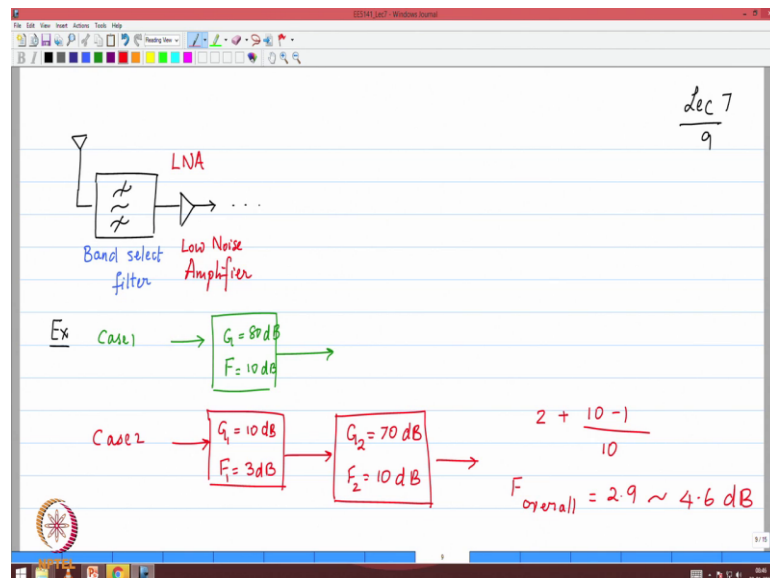 EE5141_Lec7 - Windows Journal
File Edit View Insert Actions Tools Help
Reading View
B I
Lec 7
9
LNA
Band select filter
Low Noise Amplifier
Ex Case1 G = 80 dB
F = 10 dB
Case2 G₁ = 10 dB
F₁ = 3 dB
G₂ = 70 dB
F₂ = 10 dB
2 + (10 - 1) / 10
F overall = 2.9 ~ 4.6 dB
NPTEL
9
9 / 15